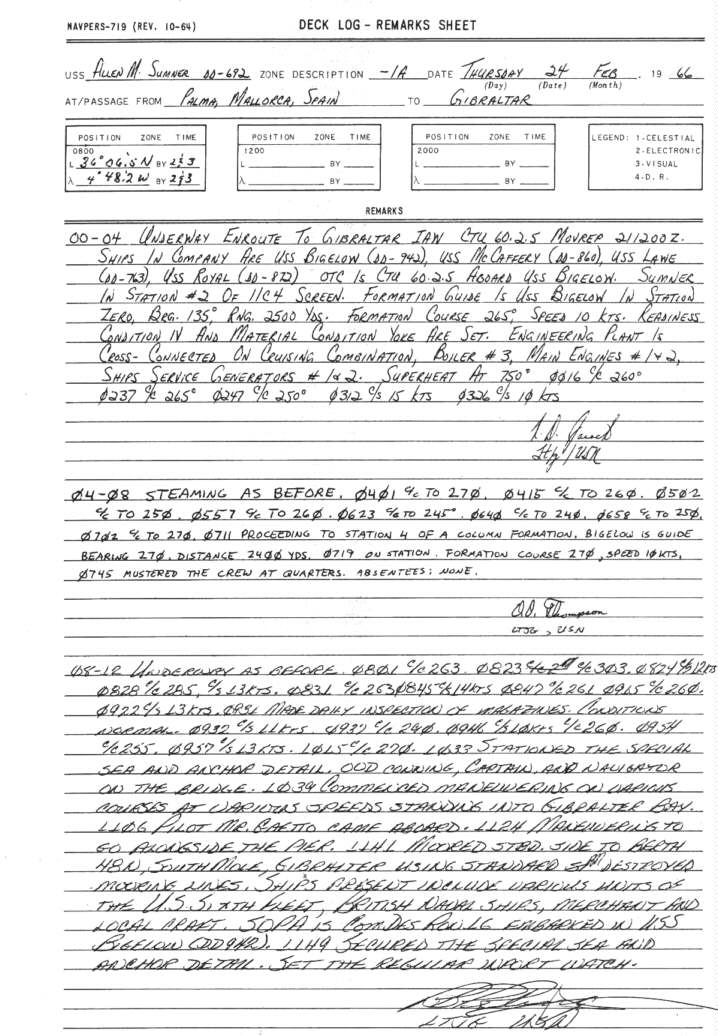 NAVPERS-719 (REV. 10-64) DECK LOG - REMARKS SHEET
USS ALLEN M. SUMNER DD-692 ZONE DESCRIPTION -1A DATE THURSDAY 24 FEB. 19 66
(Day) (Date) (Month)
AT/PASSAGE FROM PALMA, MALLORCA, SPAIN TO GIBRALTAR
POSITION ZONE TIME POSITION ZONE TIME POSITION ZONE TIME LEGEND: 1-CELESTIAL
0800 1200 2000 2-ELECTRONIC
L 36° 06.5 N BY 2&3 L BY L BY 3-VISUAL
λ 4° 48.2 W BY 2&3 λ BY λ BY 4-D. R.
REMARKS
00-04 UNDERWAY ENROUTE TO GIBRALTAR IAW CTU 60.2.5 MOVREP 211200Z.
SHIPS IN COMPANY ARE USS BIGELOW (DD-942), USS MCCAFFERY (DD-860), USS LAWE
(DD-763), USS ROYAL (DD-872) OTC IS CTU 60.2.5 ABOARD USS BIGELOW. SUMNER
IN STATION #2 OF 11C4 SCREEN. FORMATION GUIDE IS USS BIGELOW IN STATION
ZERO, BRG. 135°, RNG. 2500 YDS. FORMATION COURSE 265°, SPEED 10 KTS. READINESS
CONDITION IV AND MATERIAL CONDITION YOKE ARE SET. ENGINEERING PLANT IS
CROSS-CONNECTED ON CRUISING COMBINATION, BOILER #3, MAIN ENGINES #1&2,
SHIPS SERVICE GENERATORS #1&2. SUPERHEAT AT 750° 0016 C/C 260°
0237 C/C 265° 0247 C/C 250° 0312 C/S 15 KTS 0326 C/S 10 KTS
Ltjg / USN
04-08 STEAMING AS BEFORE. 0401 C/C TO 270. 0415 C/C TO 260. 0502
C/C TO 250. 0557 C/C TO 260. 0623 C/C TO 245°. 0640 C/C TO 240. 0658 C/C TO 250.
0702 C/C TO 270. 0711 PROCEEDING TO STATION 4 OF A COLUMN FORMATION, BIGELOW IS GUIDE
BEARING 270, DISTANCE 2400 YDS. 0719 ON STATION. FORMATION COURSE 270, SPEED 10 KTS.
0745 MUSTERED THE CREW AT QUARTERS. ABSENTEES: NONE.
Thompson
LTJG, USN
08-12 UNDERWAY AS BEFORE. 0801 C/C 263. 0823 C/C 303. 0824 C/S 12KTS
0828 C/C 285, C/S 13KTS. 0831 C/C 263 0845 C/S 14KTS 0847 C/C 261 0915 C/C 260.
0922 C/S 13KTS. 0851 MADE DAILY INSPECTION OF MAGAZINES. CONDITIONS
NORMAL. 0932 C/S 11KTS. 0937 C/C 240. 0946 C/S 10KTS C/C 260. 0954
C/C 255. 0957 C/S 13KTS. 1015 C/C 270. 1033 STATIONED THE SPECIAL
SEA AND ANCHOR DETAIL. OOD CONNING, CAPTAIN, AND NAVIGATOR
ON THE BRIDGE. 1039 COMMENCED MANEUVERING ON VARIOUS
COURSES AT VARIOUS SPEEDS STANDING INTO GIBRALTER BAY.
1106 PILOT MR. CAETTO CAME ABOARD. 1124 MANEUVERING TO
GO ALONGSIDE THE PIER. 1141 MOORED STBD. SIDE TO BERTH
48N, SOUTH MOLE, GIBRALTER USING STANDARD DESTROYER
MOORING LINES. SHIPS PRESENT INCLUDE VARIOUS UNITS OF
THE U.S. SIXTH FLEET, BRITISH NAVAL SHIPS, MERCHANT AND
LOCAL CRAFT. SOPA IS COMDESRON 16 EMBARKED IN USS
BIGELOW (DD942). 1149 SECURED THE SPECIAL SEA AND
ANCHOR DETAIL. SET THE REGULAR INPORT WATCH.
LTJG USN